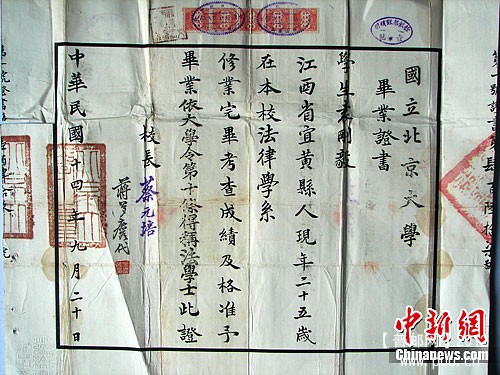 國立北京大學
畢業證書
學生袁剛毅
江西省宜黃縣人現年二十五歲
在本校法律學系
修業完畢考查成績及格准予
畢業依大學令第十條得稱法學士此證
校長 蔡元培
蔣夢麐代
中華民國十四年九月二十日
中新网
CHINANEWS.COM